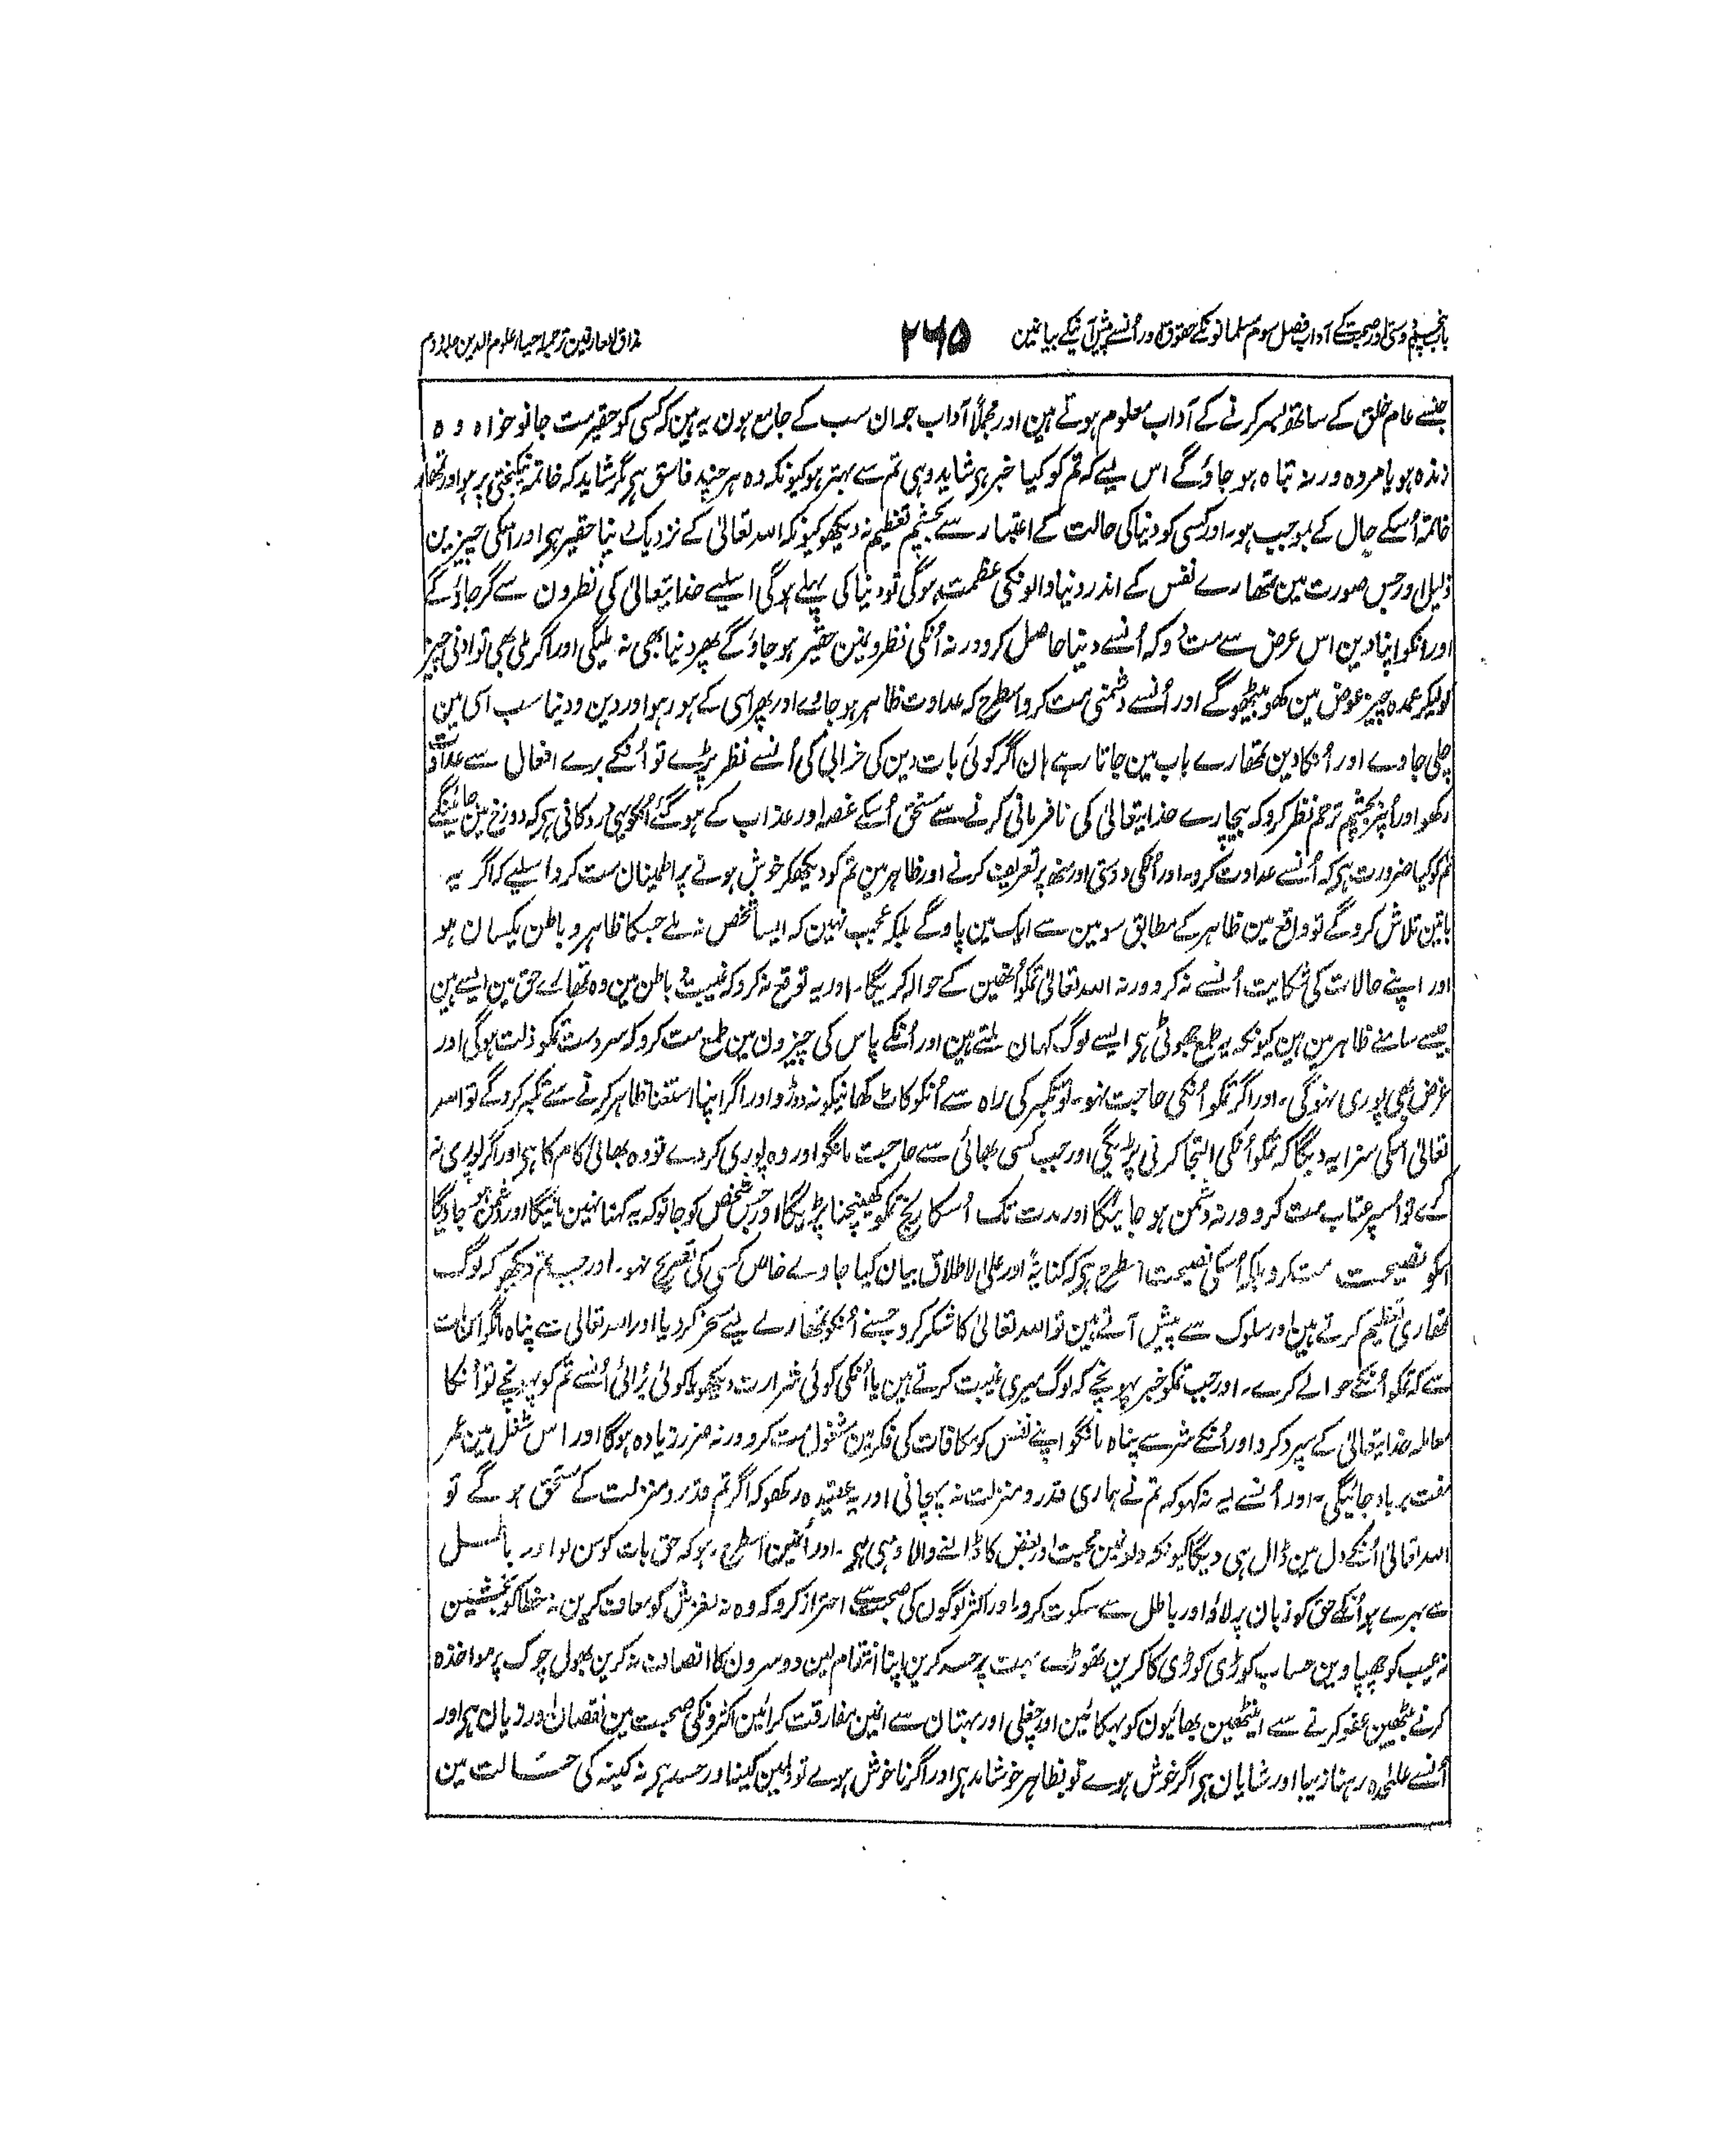 باب پنجم دوستی اور صحبت کے آداب فصل سوم مسلمانونکے حقوق اور اُنسے پیش آنیکے بیانمین
۲۶۵
مذاق العارفین ترجمہ احیاء علوم الدین جلد دوم
جنسے عام خلق کے ساتھ بسر کرنے کے آداب معلوم ہوتے ہین اور مجملًا آداب جو ان سب کے جامع ہون یہ ہین کہ کسی کو حقیر مت جانو خواہ وہ
زندہ ہو یا مردہ ورنہ تباہ ہو جاؤگے اس لیے کہ تم کو کیا خبر ہی شاید وہی تم سے بہتر ہو کیونکہ وہ ہر چند فاسق ہی مگر شاید کہ خاتمہ نیکبختی پر ہو اور تمھارا
خاتمہ اُسکے حال کے بموجب ہو۔ اور کسی کو دنیا کی حالت کے اعتبار سے بچشم تعظیم نہ دیکھو کیونکہ اللہ تعالیٰ کے نزدیک دنیا حقیر ہی اور اسکی چیزین
ذلیل اور جس صورت مین تمھارے نفس کے اندر دنیا والونکی عظمت ہوگی تو دنیا کی پہلے ہوگی اسلیے خدایتعالیٰ کی نظرون سے گر جاؤگے
اور انکو اپنا دین اس غرض سے مت دو کہ اُنسے دنیا حاصل کرو ورنہ اُنکی نظرونمین حقیر ہو جاؤگے پھر دنیا بھی نہ ملیگی اور اگر ملی بھی تو ادنیٰ چیز
کو لیکر عمدہ چیز عوض مین کھو بیٹھوگے اور اُنسے دشمنی مت کرو اسطرح کہ عداوت ظاہر ہو جائے اور پھر اسی کے ہو رہو اور دین و دنیا سب اسی مین
چلی جاوے اور اُنکا دین تمھارے باب مین جاتا رہے ہان اگر کوئی بات دین کی خرابی کی اُنسے نظر پڑے تو اُنکے برے افعال سے عداوت
رکھو اور اُنپر بچشم ترحم نظر کرو کہ بیچارے خدایتعالیٰ کی نافرمانی کرنے سے مستحق اُسکے غصہ اور عذاب کے ہوگئے اُنکو یہی کافی ہی کہ دوزخ مین جائینگے
تم کو کیا ضرورت ہی کہ اُنسے عداوت کرو۔ اور اُنکی دوستی اور منھ پر تعریف کرنے اور ظاہر مین تم کو دیکھکر خوش ہونے پر اطمینان مت کرو اسلیے کہ اگر یہ
باتین تلاش کروگے تو واقع مین ظاہر کے مطابق سو مین سے ایک مین پاوگے بلکہ عجیب نہین کہ ایسا شخص نہ ملے جسکا ظاہر و باطن یکسان ہو
اور اپنے حالات کی شکایت اُنسے نہ کرو ورنہ اللہ تعالیٰ تمکو اُنھین کے حوالہ کریگا۔ اور یہ توقع نہ کرو کہ غیبت و باطن مین وہ تمھارے حق مین ایسے ہین
جیسے سامنے ظاہر مین ہین کیونکہ یہ طمع جھوٹی ہی ایسے لوگ کہان ملتے ہین اور اُنکے پاس کی چیزون مین طمع مت کرو کہ سردست تمکو ذلت ہوگی اور
غرض بھی پوری نہوگی۔ اور اگر تمکو اُنکی حاجت نہو۔ تو تکبر کی راہ سے اُنکو کاٹ کھانیکو نہ دوڑو اور اگر اپنا استغنا ظاہر کرنے سے تکبر کروگے تو اللہ
تعالیٰ اسکی سزا یہ دیگا کہ تمکو اُنکی التجا کرنی پڑیگی اور جب کسی بھائی سے حاجت مانگو اور وہ پوری کر دے تو وہ بھائی کام کا ہی اور اگر پوری نہ
کرے تو اُسپر عتاب مت کرو ورنہ دشمن ہو جائیگا اور مدت تک اُسکا رنج تمکو کھینچنا پڑیگا اور جس شخص کو جانو کہ یہ کہنا نہین مانیگا اور دشمن ہو جاویگا
اسکو نصیحت مت کرو بلکہ اُسکی نصیحت اسطرح ہی کہ کنایۃً اور علی الاطلاق بیان کیا جاوے خاص کسی کی تصریح نہو۔ اور جب تم دیکھو کہ لوگ
تمھاری تعظیم کرتے ہین اور سلوک سے پیش آتے ہین تو اللہ تعالیٰ کا شکر کرو جسنے اُنکو تمھارے لیے مسخر کردیا اور اللہ تعالیٰ سے پناہ مانگو اس بات
سے کہ تمکو اُنکے حوالے کرے۔ اور جب تمکو خبر پہونچے کہ لوگ میری غیبت کرتے ہین یا اُنکی کوئی شرارت دیکھو یا کوئی بُرائی اُنسے تم کو پہونچے تو اُنکا
معاملہ خدایتعالیٰ کے سپرد کرو اور اُنکے شر سے پناہ مانگو اپنے نفس کو مکافات کی فکر مین مشغول مت کرو ورنہ ضرر زیادہ ہوگا اور اس شغل مین عمر
مفت برباد جائیگی۔ اور اُنسے یہ نہ کہو کہ تم نے ہماری قدر و منزلت نہ پہچانی اور یہ عقیدہ رکھو کہ اگر تم قدر و منزلت کے مستحق ہوگے تو
اللہ تعالیٰ اُنکے دل مین ڈال ہی دیگا کیونکہ دلونمین محبت اور بغض کا ڈالنے والا وہی ہی۔ اور اُنمین اسطرح رہو کہ حق بات کو سن لو اور باطل
سے بہرے ہو اُنکے حق کو زبان پر لاؤ اور باطل سے سکوت کرو۔ اور اکثر لوگون کی صحبت سے احتراز کرو کہ وہ نہ لغزش کو معاف کرین نہ خطا کو بخشین
نہ عیب کو چھپاوین حساب کوڑی کوڑی کا کرین تھوڑے بہت پر حسد کرین اپنا انتقام لین دوسرون کا انصاف نہ کرین بھول چوک پر مواخذہ
کرنے بیٹھین عفو کرنے سے اینٹھین بھائیون کو بہکائین اور چغلی اور بہتان سے انمین مفارقت کرائین اکثرونکی صحبت مین نقصان اور زیان ہی اور
اُنسے علیحدہ رہنا زیبا اور شایان ہی اگر خوش ہوے تو بظاہر خوشامد ہی اور اگر ناخوش ہوے تو دلمین کینہ اور حسد ہی نہ کینہ کی حالت مین